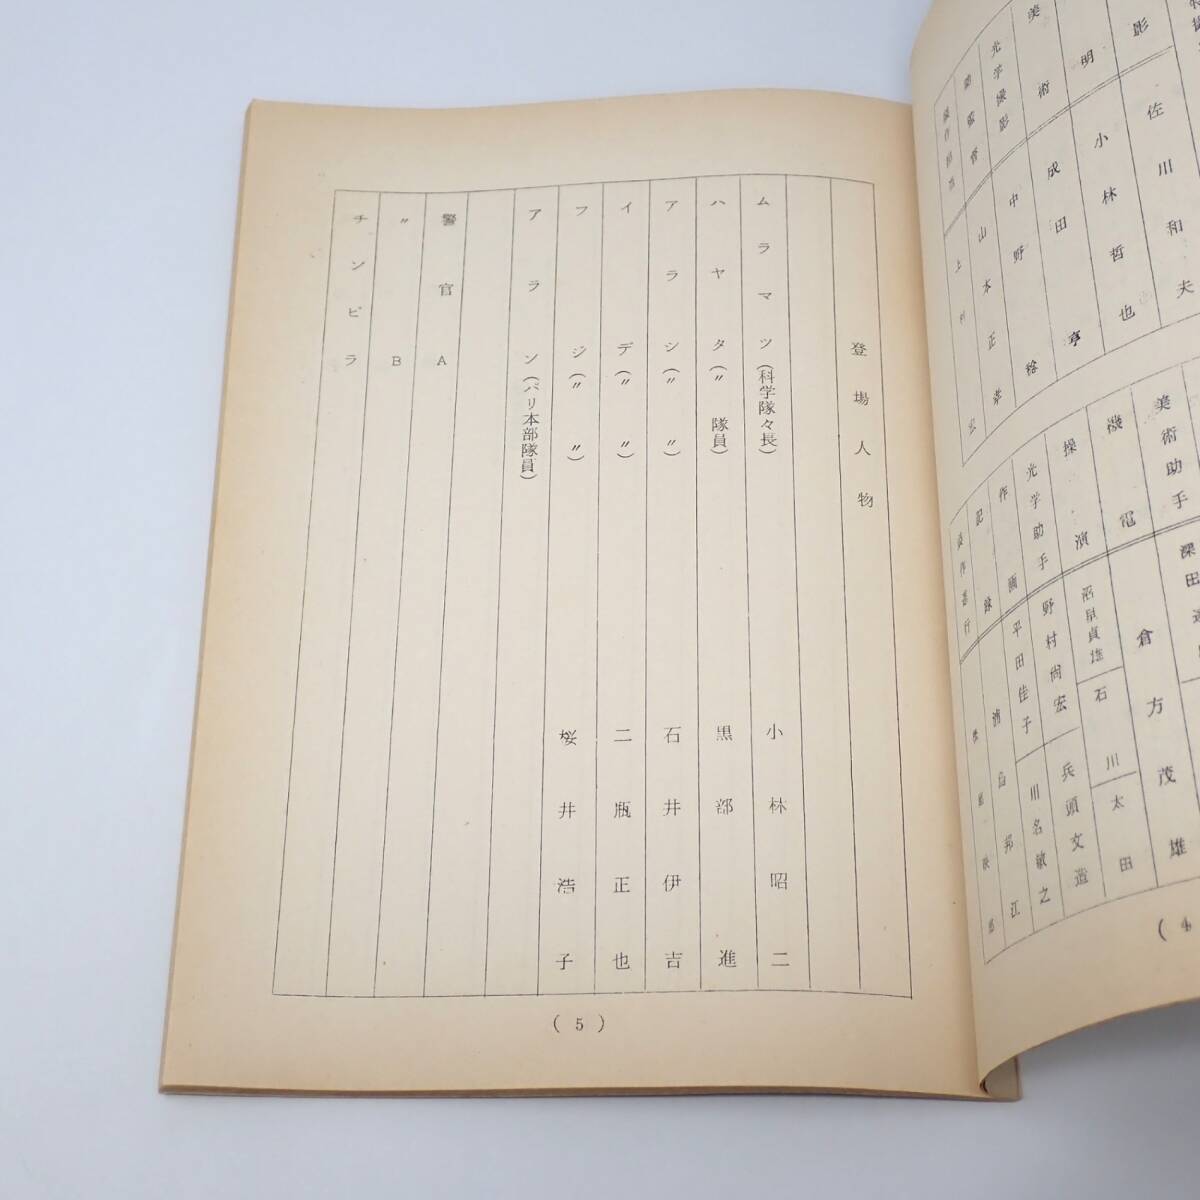 登場人物
ムラマツ(科学隊々長) 小林昭二
ハヤタ(〃 隊員) 黒部進
アラシ(〃 〃) 石井伊吉
イデ(〃 〃) 二瓶正也
フジ(〃 〃) 桜井浩子
アラン(パリ本部隊員)
警官A
〃 B
チンピラ
(5)
佐川和夫
明 小林哲也
美術 成田亨
光学撮影 中野稔
山本正孝
美術助手 深田
機電 倉方茂雄
操演 沼里貞雄 石川 太田
光学助手 野村尚宏 兵頭文造
作画 平田佳子 川名敏之
記録 浦島邦江
(4